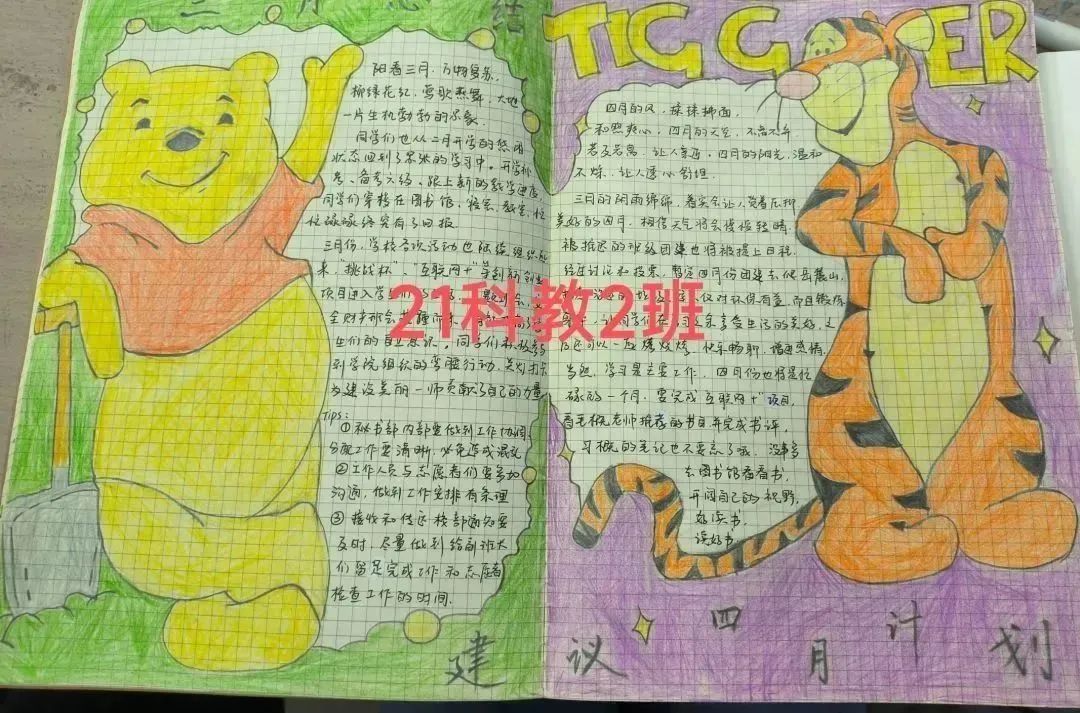 三月总结
阳春三月,万物复苏,
柳绿花红,莺歌燕舞,大地
一片生机勃勃的景象。
同学们也从二月开学的悠闲
状态回到了紧张的学习中。开学补
考、备考六级、跟上新的教学进度,
同学们穿梭在图书馆、宿舍、教室,忙
忙碌碌终究有了回报
三月份,学校各项活动也陆续组织
来,"挑战杯"、"互联网+"等创新创业
项目进入学
全
生们的自立意识。同学们积极参与
到学院组织的弯腰行动,
为建设美丽一师贡献了自己的力量
Tips:
①秘书部内部要做到工作协调,
分配工作要清晰,以免造成混乱
②工作人员与志愿者们要多加
沟通,做到工作安排有条理
③接收和传达校部通知要
及时,尽量做到给副班大
们留足完成工作和志愿者
检查工作的时间.
建议
TIGGER
四月的风,揉揉拂面,
和煦爽心,四月的天空,不高不矮
若及若离,让人亲近,四月的阳光,温和
不烁,让人透心舒坦.
三月的阴雨绵绵,着实会让人觉着压抑
美好的四月,相信天气将会慢慢转晴.
被推迟的班级团建也将被提上日程.
经过讨论和投票,暂定四月份团建去爬岳麓山,
仅对环保有益,而且锻炼
享受生活的美好,之
后还可以一起烤烧烤,快乐畅聊,增进感情.
当然,学习是主要工作,四月份也将是忙
碌的一个月,要完成"互联网+"项目,
看毛概老师推荐的书目并完成书评,
习概的笔记也不要忘了哦,没事多
去图书馆看看书,
开阔自己的视野,
好读书,
读好书.
四月计划
21科教2班